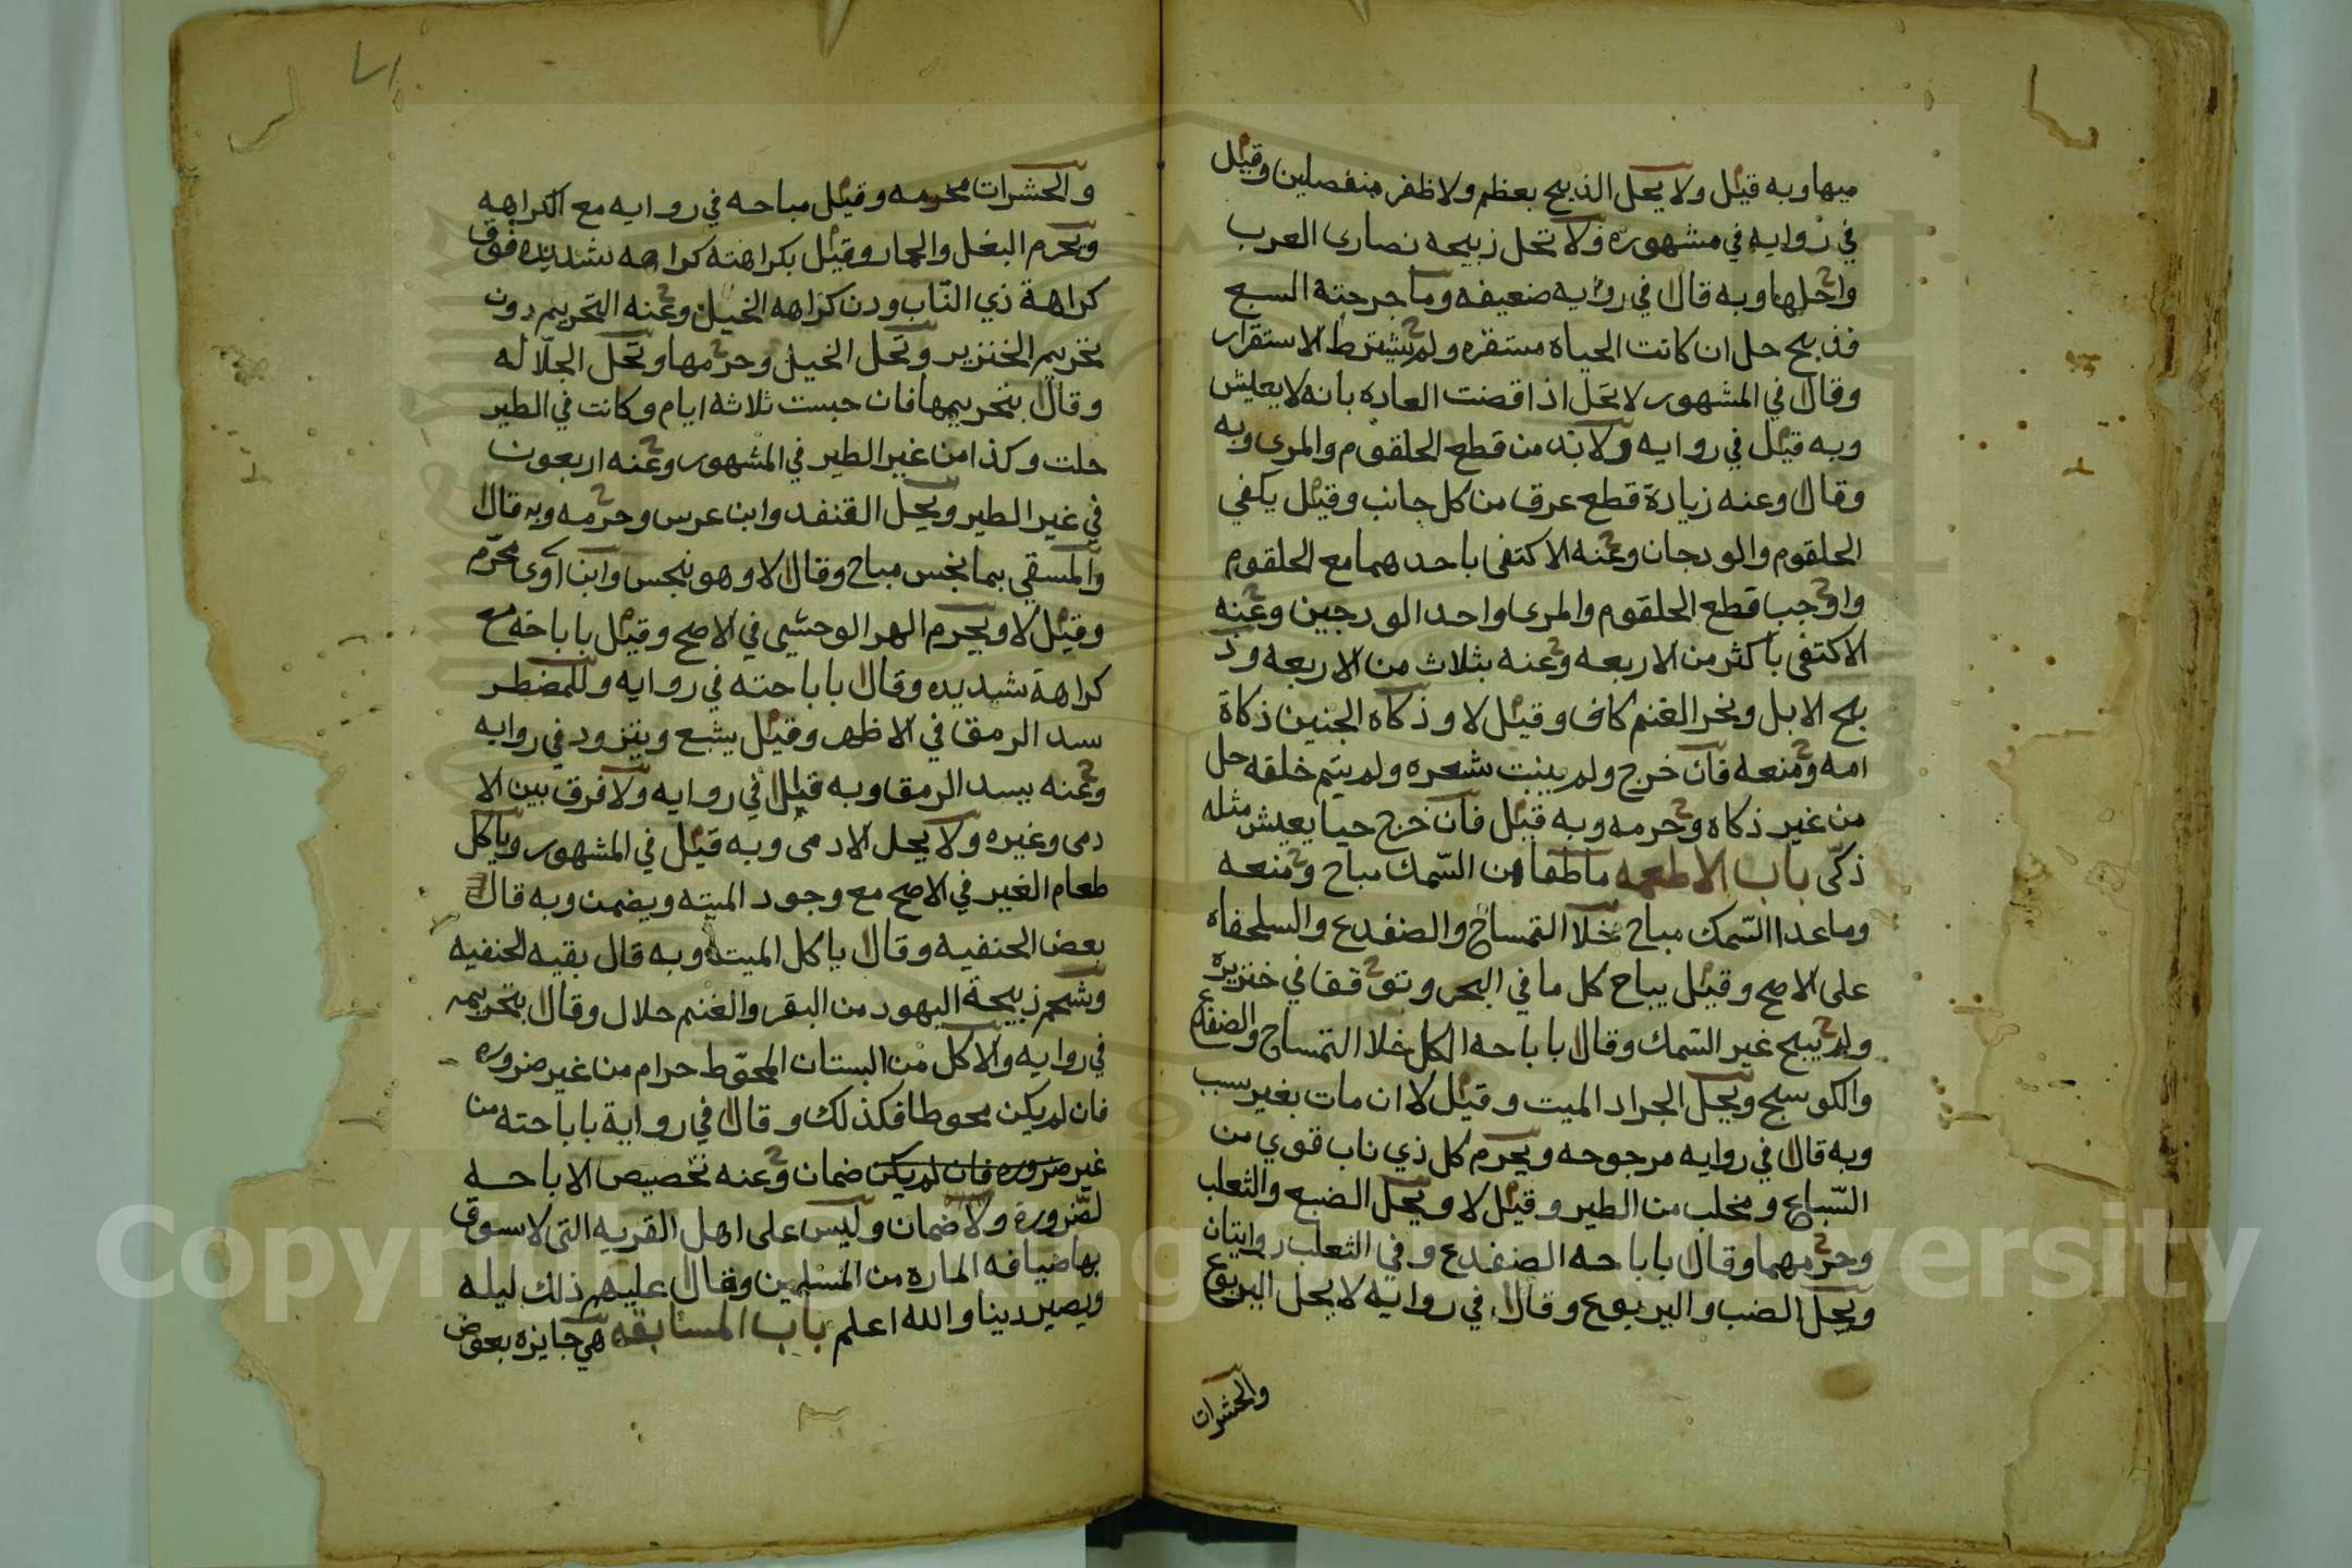 ميها وبه قيل ولا يحل الذبح بعظم ولا ظفر منفصلين وقيل
في روايه في مشهوره ولا تحل زبيحه نصارى العرب
واحلها وبه قال في روايه ضعيفه وما جرحته السبع
فذبح حل ان كانت الحياه مستقره ولم يشترط الاستقرار
وقال في المشهور لا تحل اذا قضت العاده بانه لا يعيش
وبه قيل في روايه ولا بد من قطع الحلقوم والمرى وبه
وقال وعنه زيادة قطع عرق من كل جانب وقيل يكفي
الحلقوم والودجان وعنه الاكتفى باحدهما مع الحلقوم
واوجب قطع الحلقوم والمرى واحد الودجين وعنه
الاكتفى باكثر من الاربعه وعنه بثلاث من الاربعه وذ
بح الابل ونحر الغنم كاف وقيل لا وذكاه الجنين ذكاة
امه ومنعه فان خرج ولم ينبت شعره ولم يتم خلقه حل
من غير ذكاه وحرمه وبه قيل فان خرج حيا يعيش مثله
ذكّى باب الاطعمه ما طفا من السّمك مباح ومنعه
وما عدا السّمك مباح خلا التمساح والضفدع والسلحفاه
على الاصح وقيل يباح كل ما في البحر وتوقفا في خنزيره
ولم يبح غير السمك وقال باباحه الكل خلا التمساح والضفدع
والكوسج ويحل الجراد الميت وقيل لا ان مات بغير سبب
وبه قال في روايه مرجوحه ويحرم كل ذي ناب قوي من
السّباع ومخلب من الطير وقيل لا ويحل الضبع والثعلب
وحرمهما وقال باباحه الضفدع وفي الثعلب روايتان
ويحل الضب واليربوع وقال في روايه لا يحل اليربوع
والحشرات
والحشرات محرمه وقيل مباحه في روايه مع الكراهه
ويحرم البغل والحمار وقيل بكراهته كراهه شديده فوق
كراهة ذي النّاب ودن كراهه الخيل وعنه التحريم دون
تحريم الخنزير وتحل الخيل وحرمها وتحل الجلّاله
وقال بتحريمها فان حبست ثلاثه ايام وكانت في الطير
حلت وكذا من غير الطير في المشهور وعنه اربعون
في غير الطير ويحل القنفد وابن عرس وحرمه وبه قال
والمسقي بما نجس مباح وقال لا وهو نجس وابن آوى محرّم
وقيل لا ويحرم الهر الوحشي في الاصح وقيل باباحه مع
كراهة شديده وقال باباحته في روايه وللمضطر
سد الرمق في الاظهر وقيل يشبع ويتزود في روايه
وعنه بسد الرمق وبه قيل في روايه ولا فرق بين الا
دمى وغيره ولا يحل الادمى وبه قيل في المشهور وياكل
طعام الغير في الاصح مع وجود الميته ويضمن وبه قال
بعض الحنفيه وقال ياكل الميته وبه قال بقيه الحنفيه
وشحم زبيحة اليهود من البقر والغنم حلال وقال بتحريمه
في روايه والاكل من البستان المحوّط حرام من غير ضروره
فان لم يكن محوطا فكذلك وقال في رواية باباحته من
غير ضروره فان لم يكن ضمان وعنه تخصيص الاباحه
لضّرورة ولا ضمان وليس على اهل القريه التى لا سوق
بها ضيافه الماره من المسلمين وقال عليهم ذلك ليله
ويصير دينا والله اعلم باب المسابقه هي جايزه بعوض
Copyright © King Saud University